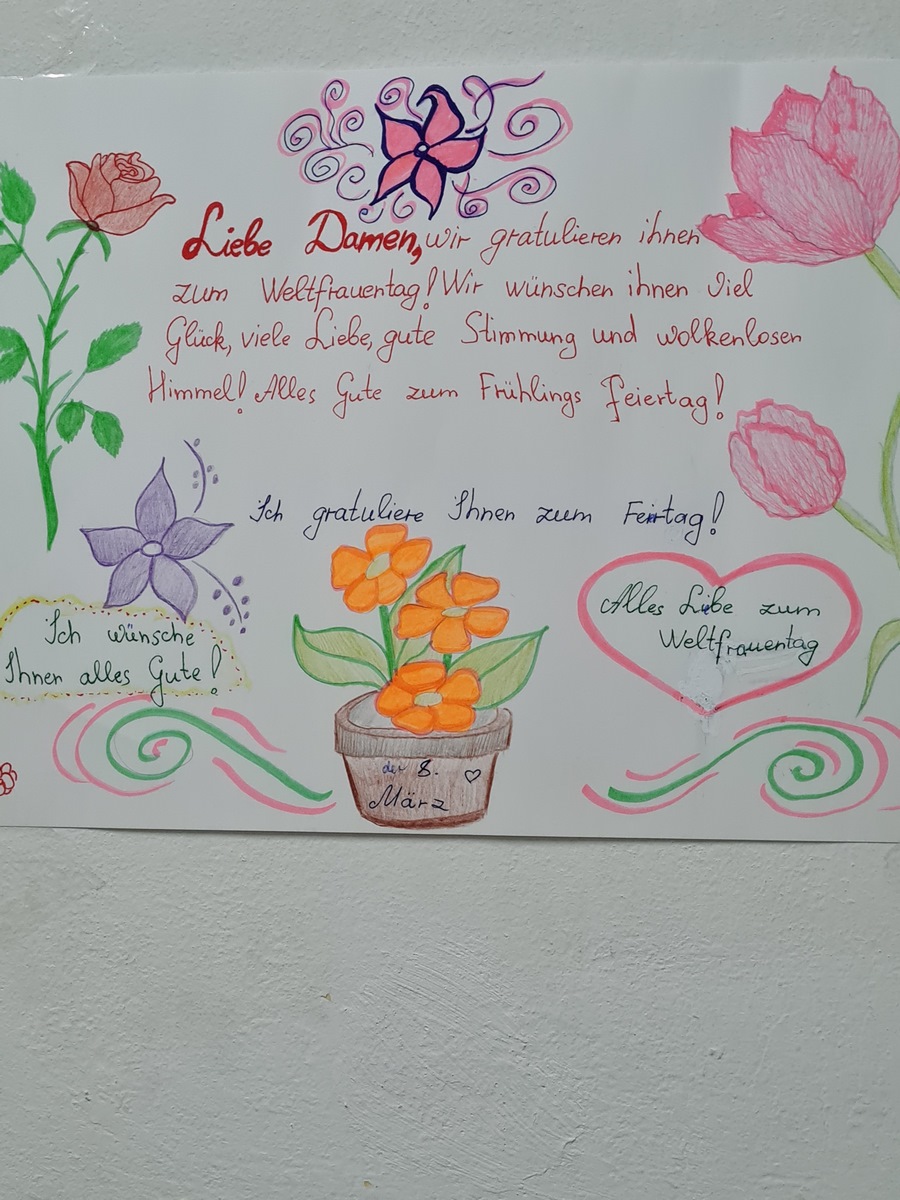 Liebe Damen, wir gratulieren ihnen
zum Weltfrauentag! Wir wünschen ihnen Viel
Glück, viele Liebe, gute Stimmung und wolkenlosen
Himmel! Alles Gute zum Frühlings Feiertag!
Ich gratuliere Ihnen zum Feirtag!
Alles Liebe zum
Weltfrauentag
Ich wünsche
Ihnen alles Gute!
der 8.
März